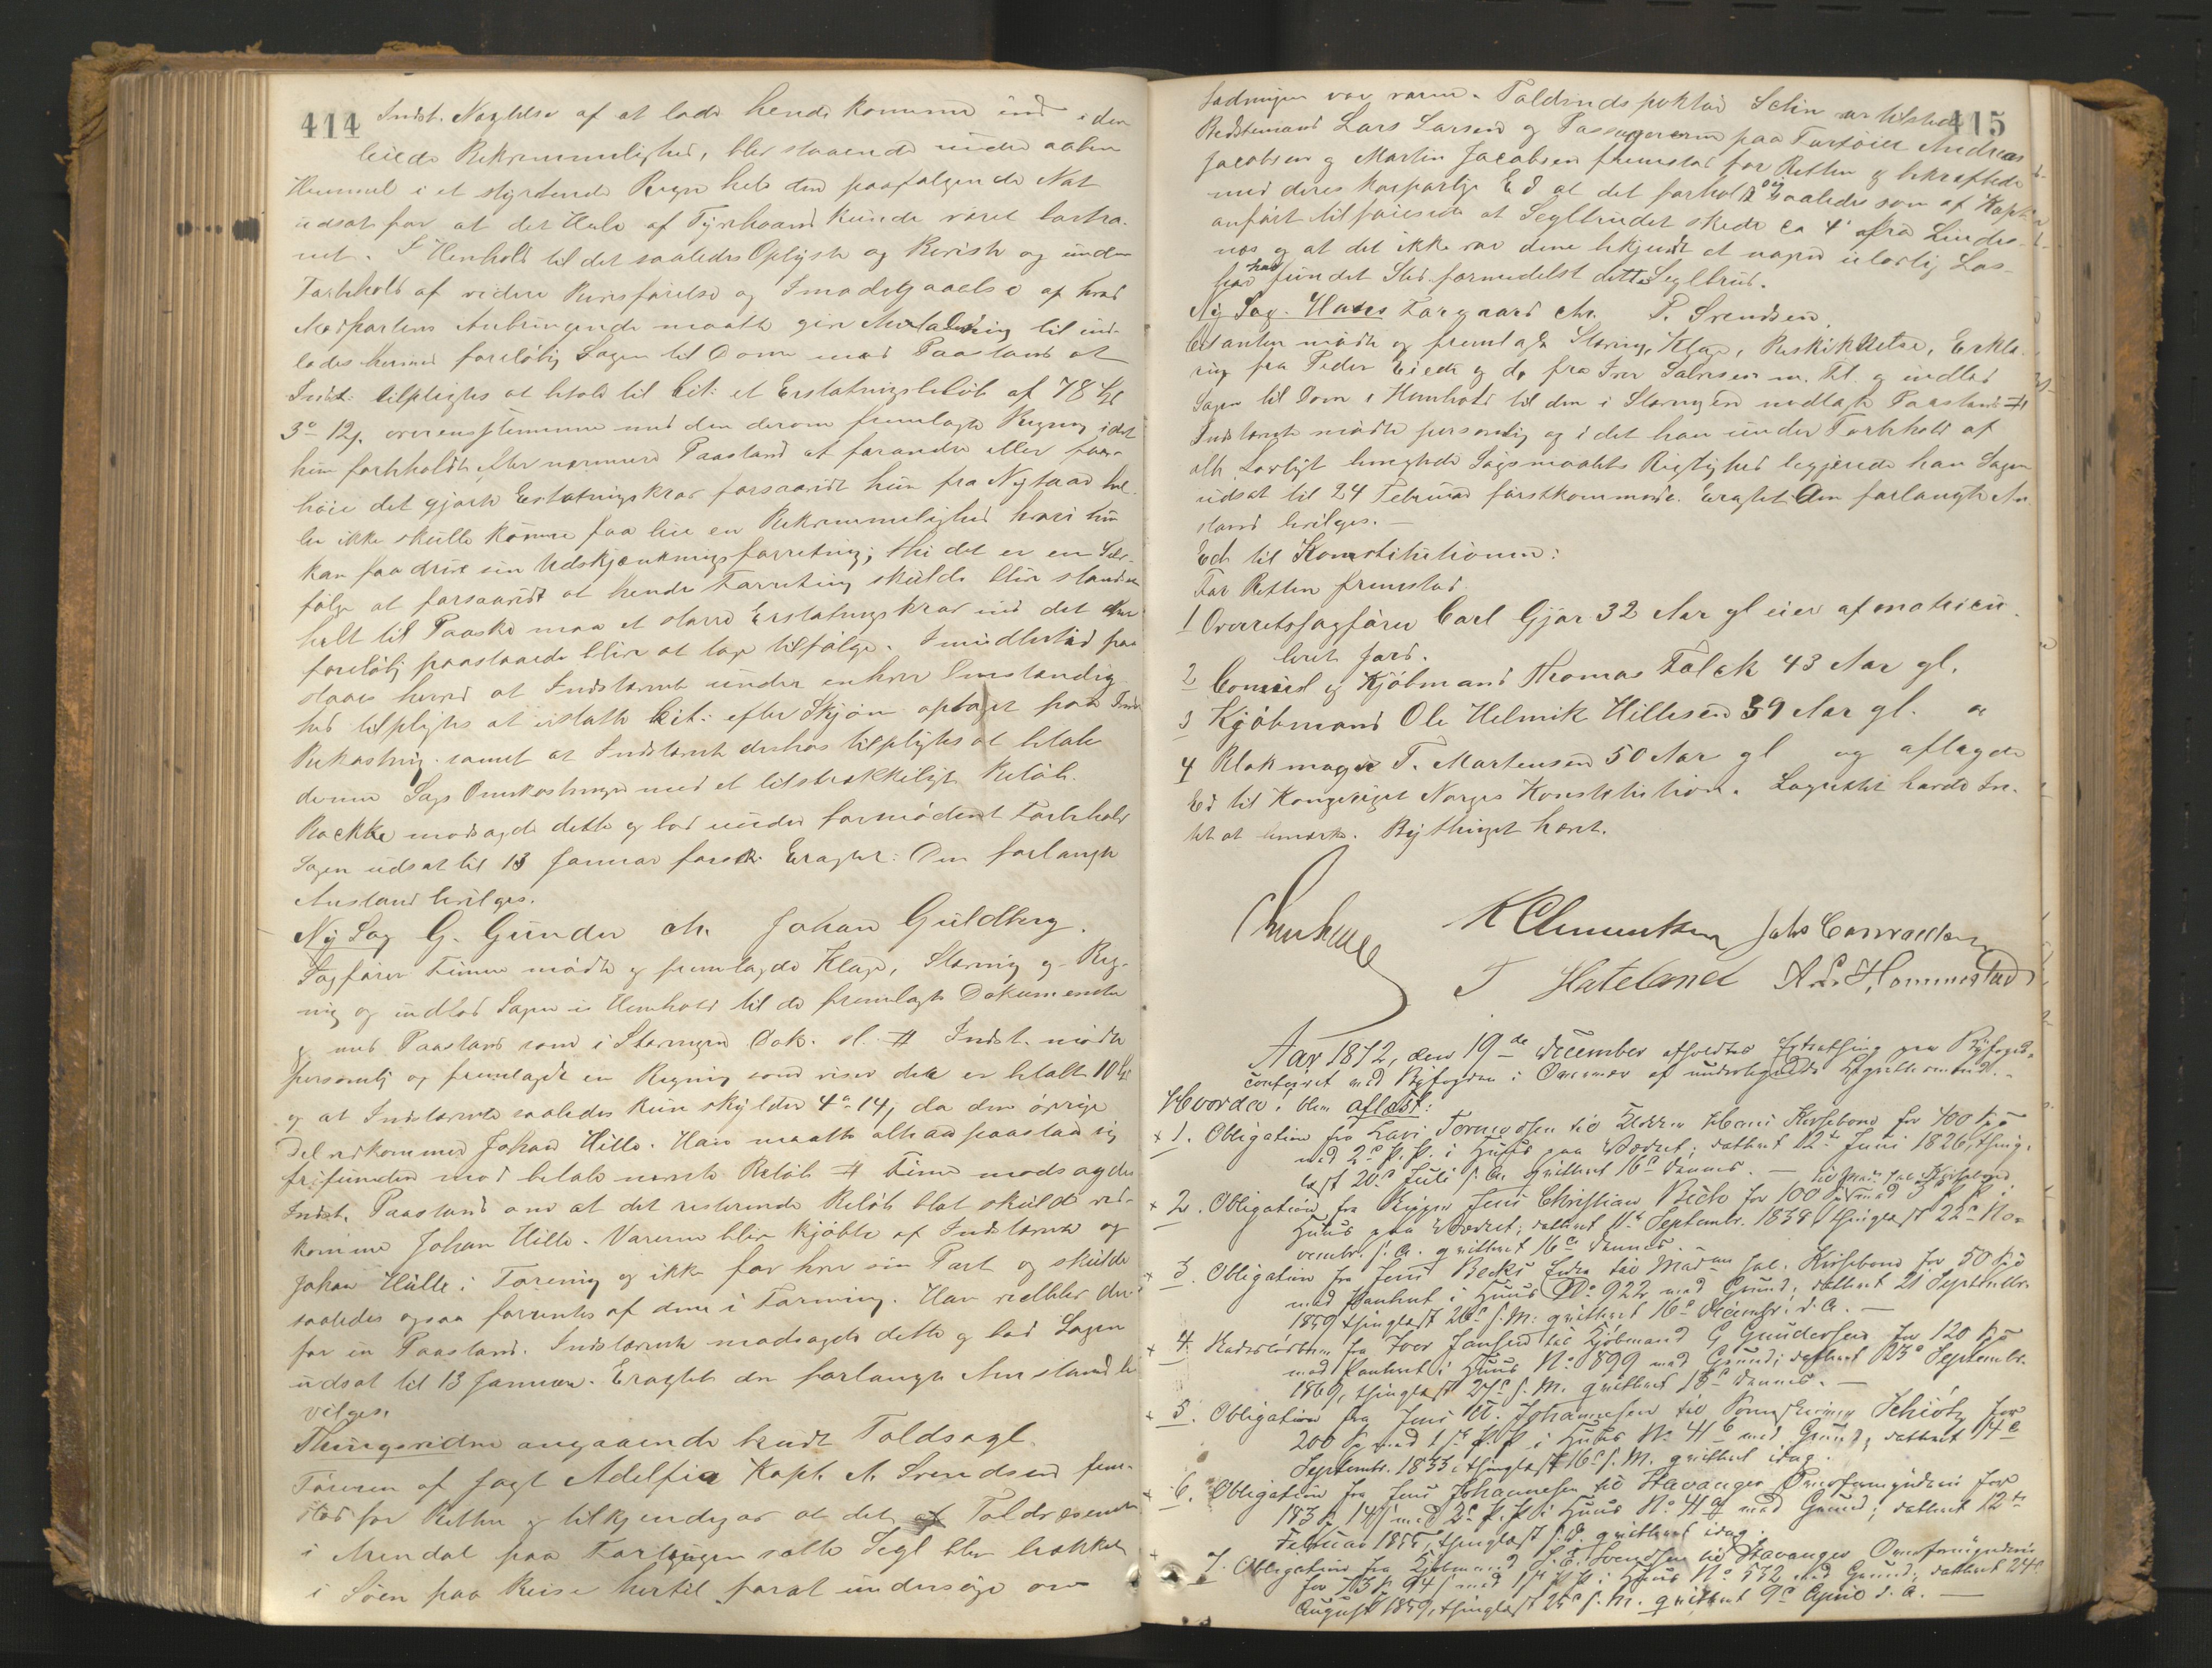 414
Indst. Nægtelse af at lade hende komme ind i den
leiede Bekvemmelighed, blev staaende under aaben
Himmel i et styrtende Regn hele den paafølgende Nat
udsat for at det Hele af Tyvehaand kunde været borttaget.
. I Henhold til det saaledes Oplyste og Beviste og under
Forbehold af videre Bevisførelse og Imødegaaelse af hvad
Modpartens Anbringende maatte give Anledning til ind-
lades hermed foreløbig Sagen til Doms med Paastand at
Indst: tilpligtes at betale til Cit: et Erstatningsbeløb af 78
3 12 overensstemmende med den derom fremlagte Regning idet
hun forbeholdt efter nærmere Paastand at forandre eller for-
høie det gjorte Erstatningskrav forsaavidt hun fra Nytaar
ikke skulle kunne faa leie en Bekvemmelighed hvori hun
kan faa drive sin Udskjænkningsforretning; thi det er en Selv-
følge at forsaavidt at hendes Forretning skulde blive standset
helt til Paaske maa et større Erstatningskrav end det
foreløbig paastaaede blive at tage tilfølge. Imidlertid paa-
staaes herved at Indstævnte under enhver Omstændig-
hed tilpligtes at erstatte Cit: efter Skjøn optaget paa Indst.
Bekostning samt at Indstævnte derhos tilpligtes at betale
denne Sags Omkostninger med et tilstrækkeligt Beløb.
Raekke modsagde dette og lod under fornødent Forbehold
Sagen udsat til 13 Januar førstk. Eragtet: Den forlangte
Anstand bevilges.
Ny Sag G. Gunder ctr. Johan Guldberg.
Sagfører Finne mødte og fremlagde Klage, Stævning og Reg-
ning og indlod Sagen i Henhold til de fremlagte Dokumenter
og med Paastand som i Stævningen Dok. sl. # Indst. mødte
personlig og fremlagde en Regning som viser at der er betalt 10
og at Indstævnte saaledes kun skylder 4 14, da den øvrige
Del vedkommer Johan Hille. Han maatte altsaa paastaa sig
frifunden mod betale nævnte Beløb # Finne modsagde
Indst. Paastand om at det resterende Beløb blot skulde ved-
komme Johan Hille. Varerne blev kjøbte af Indstævnte og
Johan Hille i Forening og ikke for hver sin Part og skulde
saaledes ogsaa forventes af dem i Forening. Han vedblev der-
for sin Paastand. Indstævnte modsagde dette og lod Sagen
udsat til 13 Januar. Eragtet den forlangte Anstand be-
vilges.
Thingsvidne angaaende brudt Toldsegl.
Føreren af Jagt Adelfia Kapt. A. Svendsen frem-
stod for Retten og tilkjendegav at det af Toldvæsenet
i Mandal paa Fartøiet satte Segl blev brækket
i Søen paa Reise hertil forat undersøge om
415
ladningen var varm. Toldinspektør Schin var tilstede
Bedstemand Lars Larsen og Passagererne paa Fartøiet Andreas
Jacobsen og Martin Jacobsen fremstod for Retten og bekræftede
med deres korporlige Ed at det forholdt sig saaledes som af Kaptein
anført tilføiende at Seglbrudet skede ca 4' fra Lindes-
næs og at det ikke var dem bekjendt at nogen ulovlig Los-
har fundet Sted formedelst dette Seglbrud.
Ny Sag. Hans Fargaard ctr. P. Svendsen
Citanten mødte og fremlagde Stævning, Klage, Beskikkelse, Erklæ-
ring fra Peder Eiede og do fra Iver Salvesen m. Fl. og indlod
Sagen til Dom i Henhold til den i Stævningen nedlagte Paastand #
Indstævnte mødte personlig og i det han under Forbehold af
alt Lovligt benegtede Søgsmaalets Rigtighed begjærede han Sagen
udsat til 24 Februar førstkommende. Eragtet Den forlangte An-
stand bevilges.—
Ed til Konstitutionen:
For Retten fremstod
1 Overretssagfører Carl Gjør 32 Aar gl eier af matricu-
leret Jord.
2 Consul og Kjøbmand Thomas Falck 43 Aar gl.
3 Kjøbmand Ole Helmik Hillesen 39 Aar gl. og
4 Blokmager T. Martensen 50 Aar gl og aflagde
Ed til Kongeriget Norges Konstitution. Lagrettet havde In-
tet at bemærke. Bythinget hævet.
K Clementsen Jahs Conradsen
T Hateland A. L. Hommestad
Aar 1872, den 19de December afholdtes Extrathing paa Byfoged-
contoiret ved Byfogden i Overvær af undertegnede Lagrettesmænd.
Hvorda! blev aflæst:
+ 1. Obligation fra Lars Tormodsen til Enken Maren Kirsebom for 400
med 2d P. P. i Huus paa Verket; dateret 12te Juni 1826, thing-
læst 20d Juli s. A. qvitteret 16d dennes. —
+ 2. Obligation fra Skipper Jens Christian Beck for 100 med P. P.
Huus paa Verket; dateret 11te Septembr. 1838, thinglæst 22d No-
vembr. s. A. qvitteret 16d dennes.
+ 3. Obligation fra Jens Becks Enke til Madam sal. Kirsebom for 50
med Panteret i Huus No 922 med Grund, dateret 21 Septembr.
1859 thinglæst 26d s. M. qvitteret 16d Decembr. d. A. —
+ 4. Kadescørbrev fra Iver Jansen til Kjøbmand G Gundersen for 120
med Panteret i Huus No 899 med Grund; dateret 23d Septembr.
1869, thinglæst 27d s. M. qvitteret 18d dennes. —
+ 5. Obligation fra Jens M. Johannesen til Schiøtz for
200 med 1ste P. P. i Huus No 416 med Grund, dateret 14d
Septembr. 1853, thinglæst 16d s. M. qvitteret idag.
+ 6. Obligation fra Jens Johannesen til Stavanger Overformynderi for
183 14 med 2d P. P. i Huus No 419 med Grund; dateret 12te
Februar 1855, thinglæst s. D. qvitteret idag.
+ 7. Obligation fra Kjøbmand S. E. Svendsen til Stavanger Overformynderi
for 73 94 med 1ste P. P. i Huus No 532 med Grund, dateret 24d
August 1859, thinglæst 25d s. M. qvitteret 9d April d. A. —